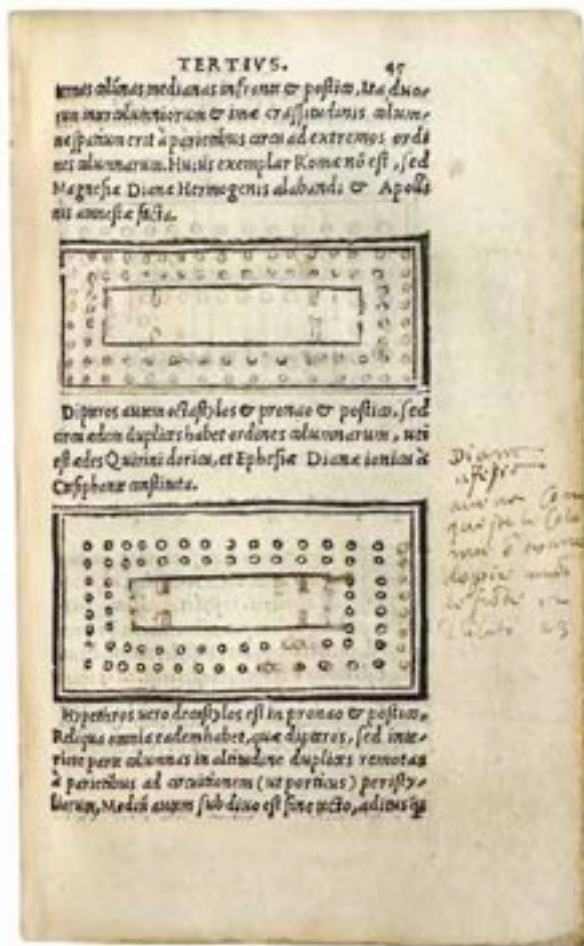 TERTIVS. 45
ternas colūnas medianas in fronte & postico. Ita duo-
rum intercolumniorum & imæ crassitudinis colum-
ne spatium erit à parietibus circa ad extremos ordi
nes columnarum. Huius exemplar Romæ nō est, sed
Magnesiæ Dianæ Hermogenis alabandi & Apolli
nis amnestæ facta.
Dipteros autem octastylos & pronao & postico, sed
circa ædem duplices habet ordines columnarum, uti
est ædes Quirini dorica, et Ephesiæ Dianæ ionica à
Ctesiphonte constituta.
Diana
Hypethros uero decastylos est in pronao & postico.
Reliqua omnia eadem habet, quæ dipteros, sed inte-
riore parte columnas in altitudine duplices remotas
à parietibus ad circuitionem (ut porticus) peristy-
liorum, Mediū autem sub diuo est sine tecto, aditus